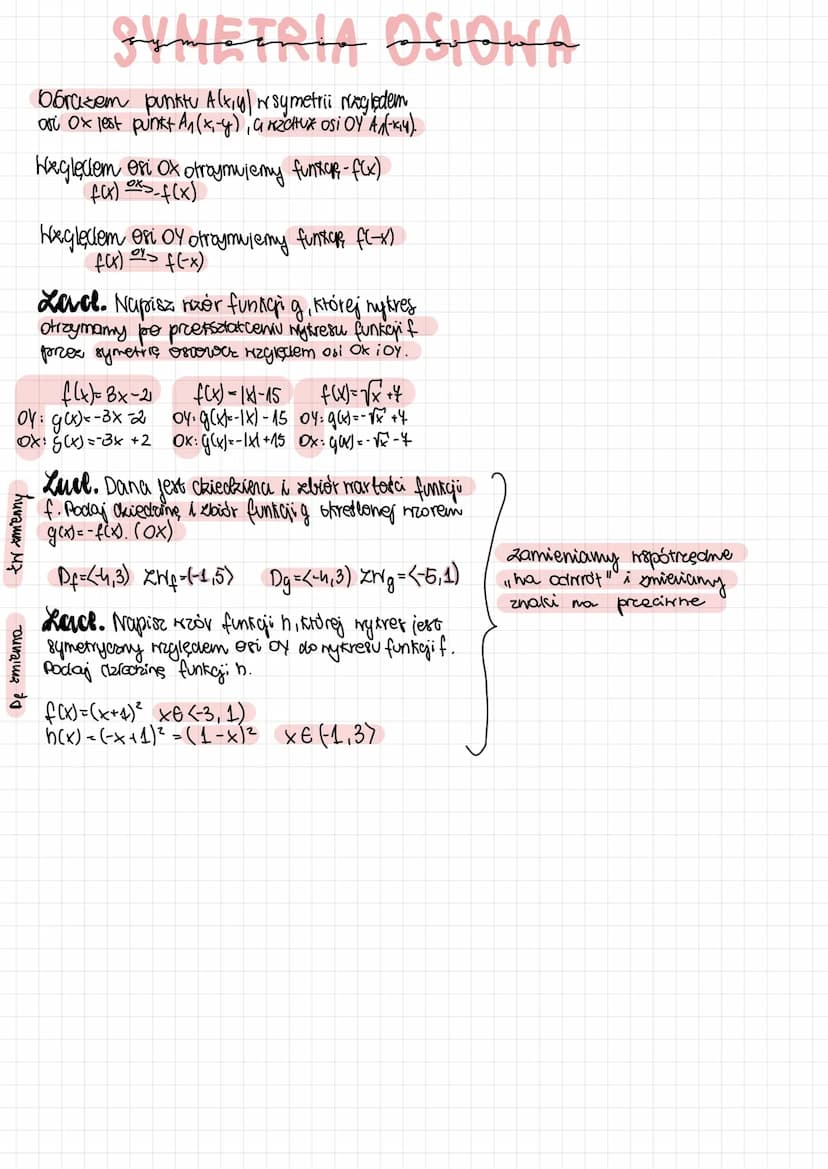 SYMETRIA OSIOWA
symetria osiowa
Obrazem punktu A(x,y) w symetrii względem
osi OX jest punkt A₁(x,-y), a wzdłuż osi OY A₁(-x,y).
Względem osi OX otrzymujemy funkcję -f(x)
f(x) OX=> -f(x)
Względem osi OY otrzymujemy funkcję f(-x)
f(x) OY=> f(-x)
Zad. Napisz wzór funkcji g, której wykres
otrzymamy po przekształceniu wykresu funkcji f
przez symetrię osiową względem osi OX i OY.
f(x)=3x-2 f(x)=|x|-15 f(x)=√x +4
OY: g(x)=-3x-2 OY: g(x)=|-x|-15 OY: g(x)=-√x +4
OX: g(x)=-3x+2 OX: g(x)=-|x|+15 OX: g(x)=-√x -4
ZW zmienny
Zad. Dana jest dziedzina i zbiór wartości funkcji
f. Podaj dziedzinę i zbiór funkcji g określonej wzorem
g(x)=-f(x). (OX)
Df=<-4,3) ZWf=(-1,5> Dg=<-4,3) ZWg=<-5,1)
zamieniamy współrzędne
"na odwrót" i zmieniamy
znaki na przeciwne
Df zmienna
Zad. Napisz wzór funkcji h, której wykres jest
symetryczny względem osi OY do wykresu funkcji f.
Podaj dziedzinę funkcji h.
f(x)=(x+1)² x∈<-3,1)
h(x)=(-x+1)²=(1-x)² x∈(-1,3>